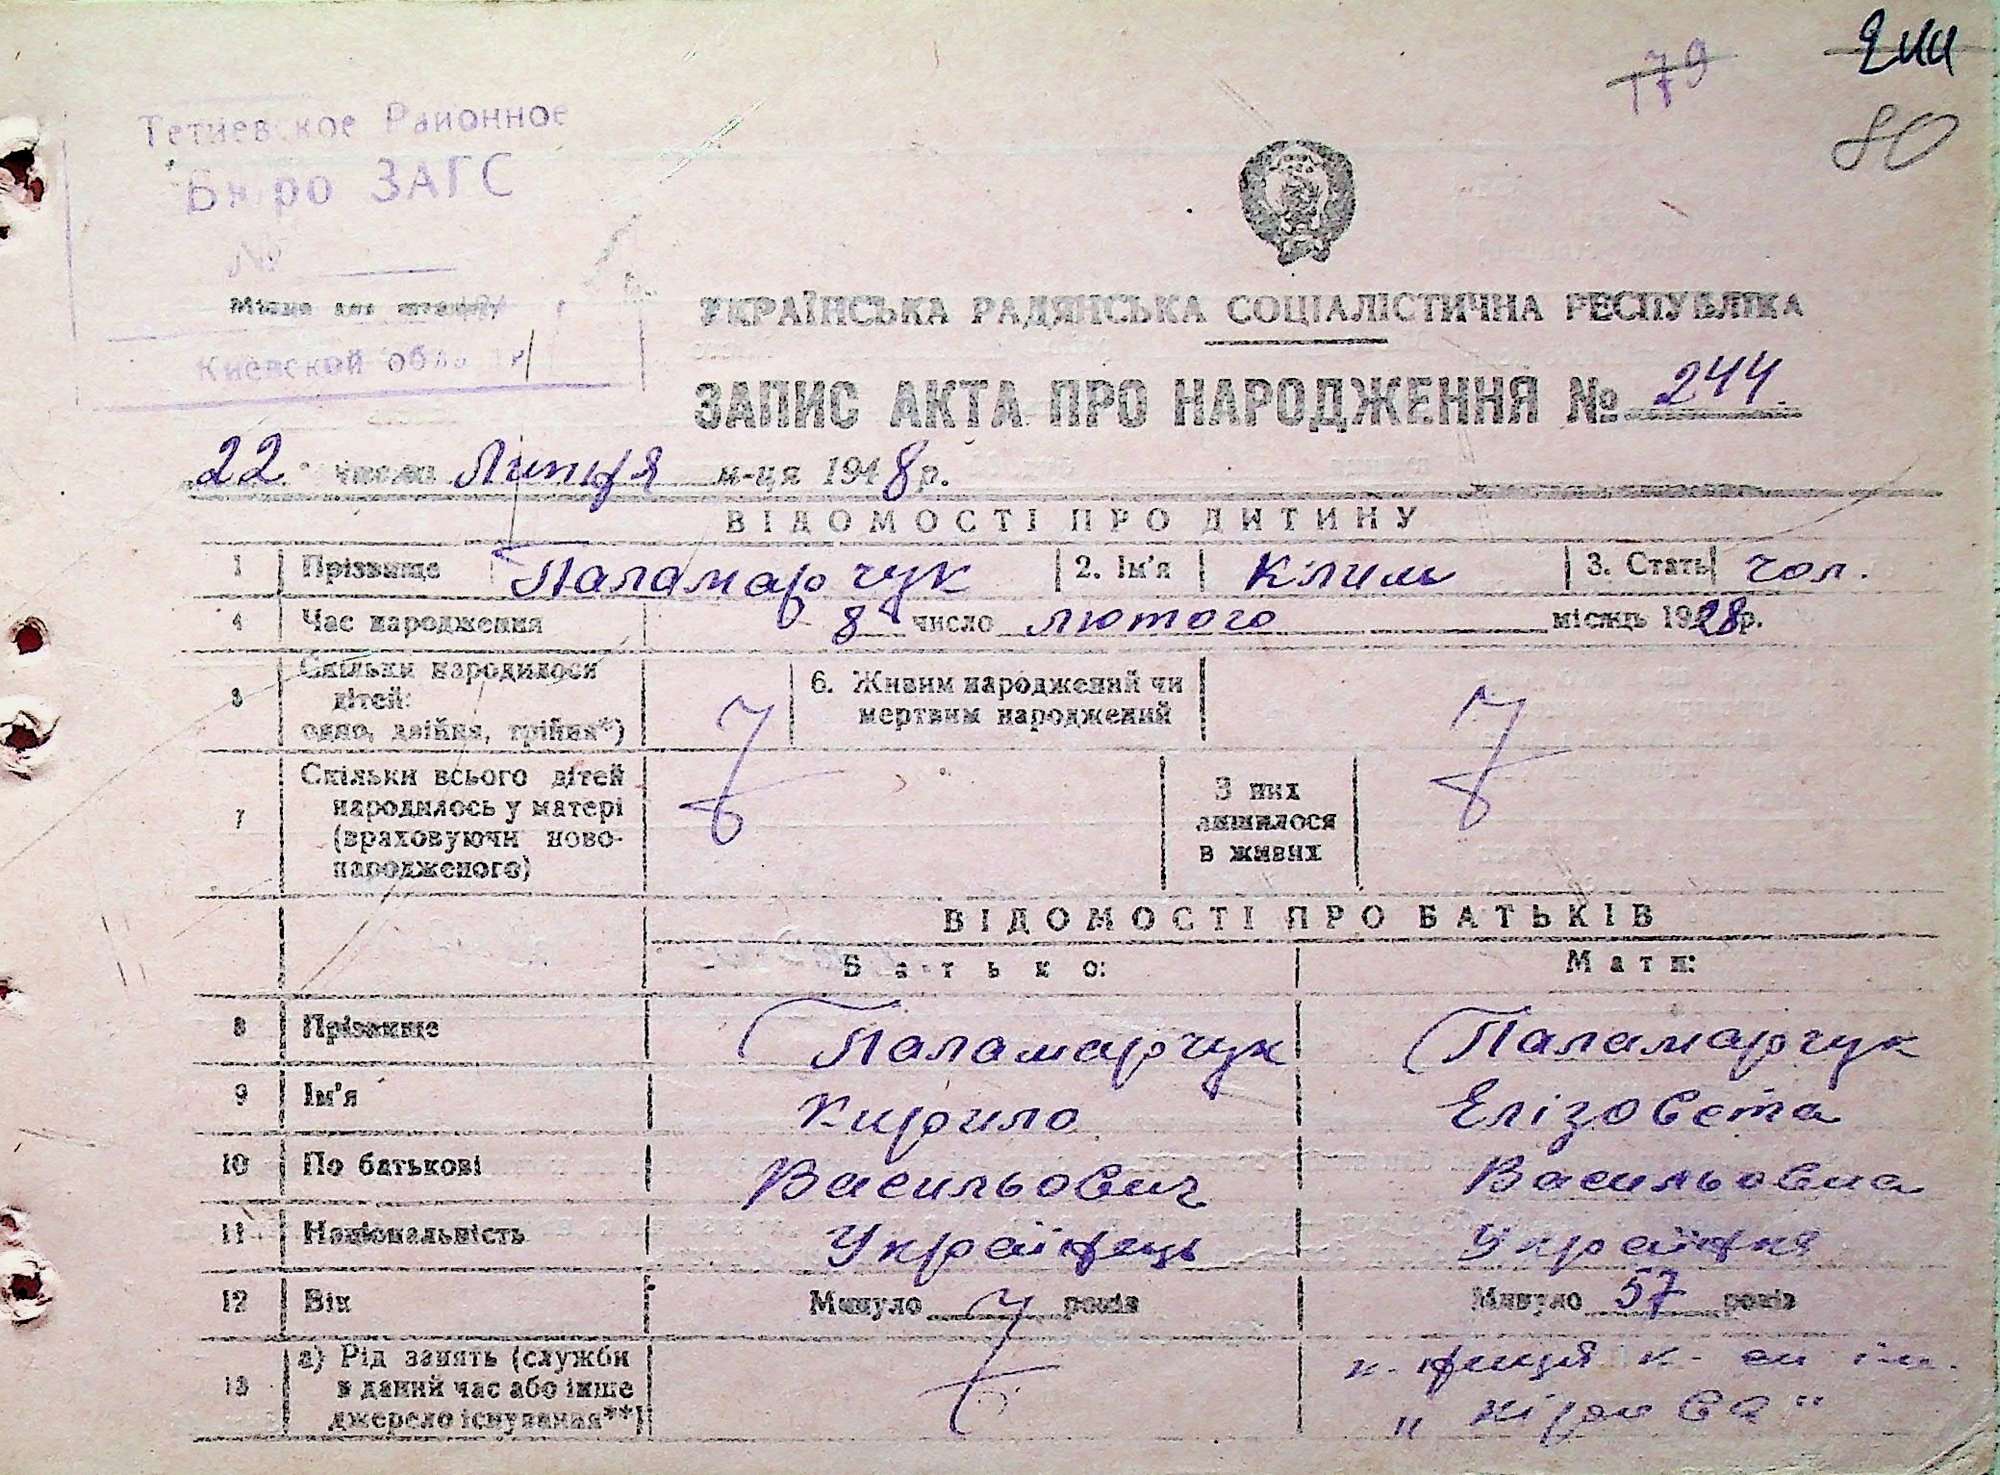 179
244
80
Тетиевское Районное
Бюро ЗАГС
№
Місце для штампу
Киевской области
УКРАЇНСЬКА РАДЯНСЬКА СОЦІАЛІСТИЧНА РЕСПУБЛІКА
ЗАПИС АКТА ПРО НАРОДЖЕННЯ № 244.
22 числа Липця м-ця 1948 р.
ВІДОМОСТІ ПРО ДИТИНУ
1 Прізвище Паламарчук 2. Ім'я Клим 3. Стать чол.
4 Час народження 8 число лютого місяць 1928 р.
5 Скільки народилося дітей: одно, двійня, трійня*)
6. Живим народжений чи мертвим народжений
7 Скільки всього дітей народилось у матері (враховуючи новонародженого)
З них лишилося в живих
ВІДОМОСТІ ПРО БАТЬКІВ
Батько: Мати:
8 Прізвище Паламарчук Паламарчук
9 Ім'я Кирило Елізовета
10 По батькові Васильович Васильовна
11 Національність Українець Українка
12 Вік Минуло років Минуло 57 років
13 а) Рід занять (служби в даний час або інше джерело існування**)
к-ниця к-сп ім.
"Кірова"